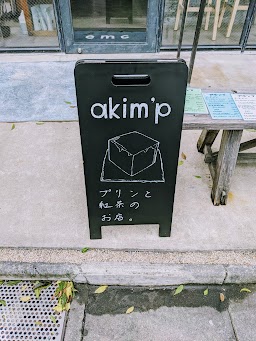 emc
akim'p
プリンと
紅茶の
お店。